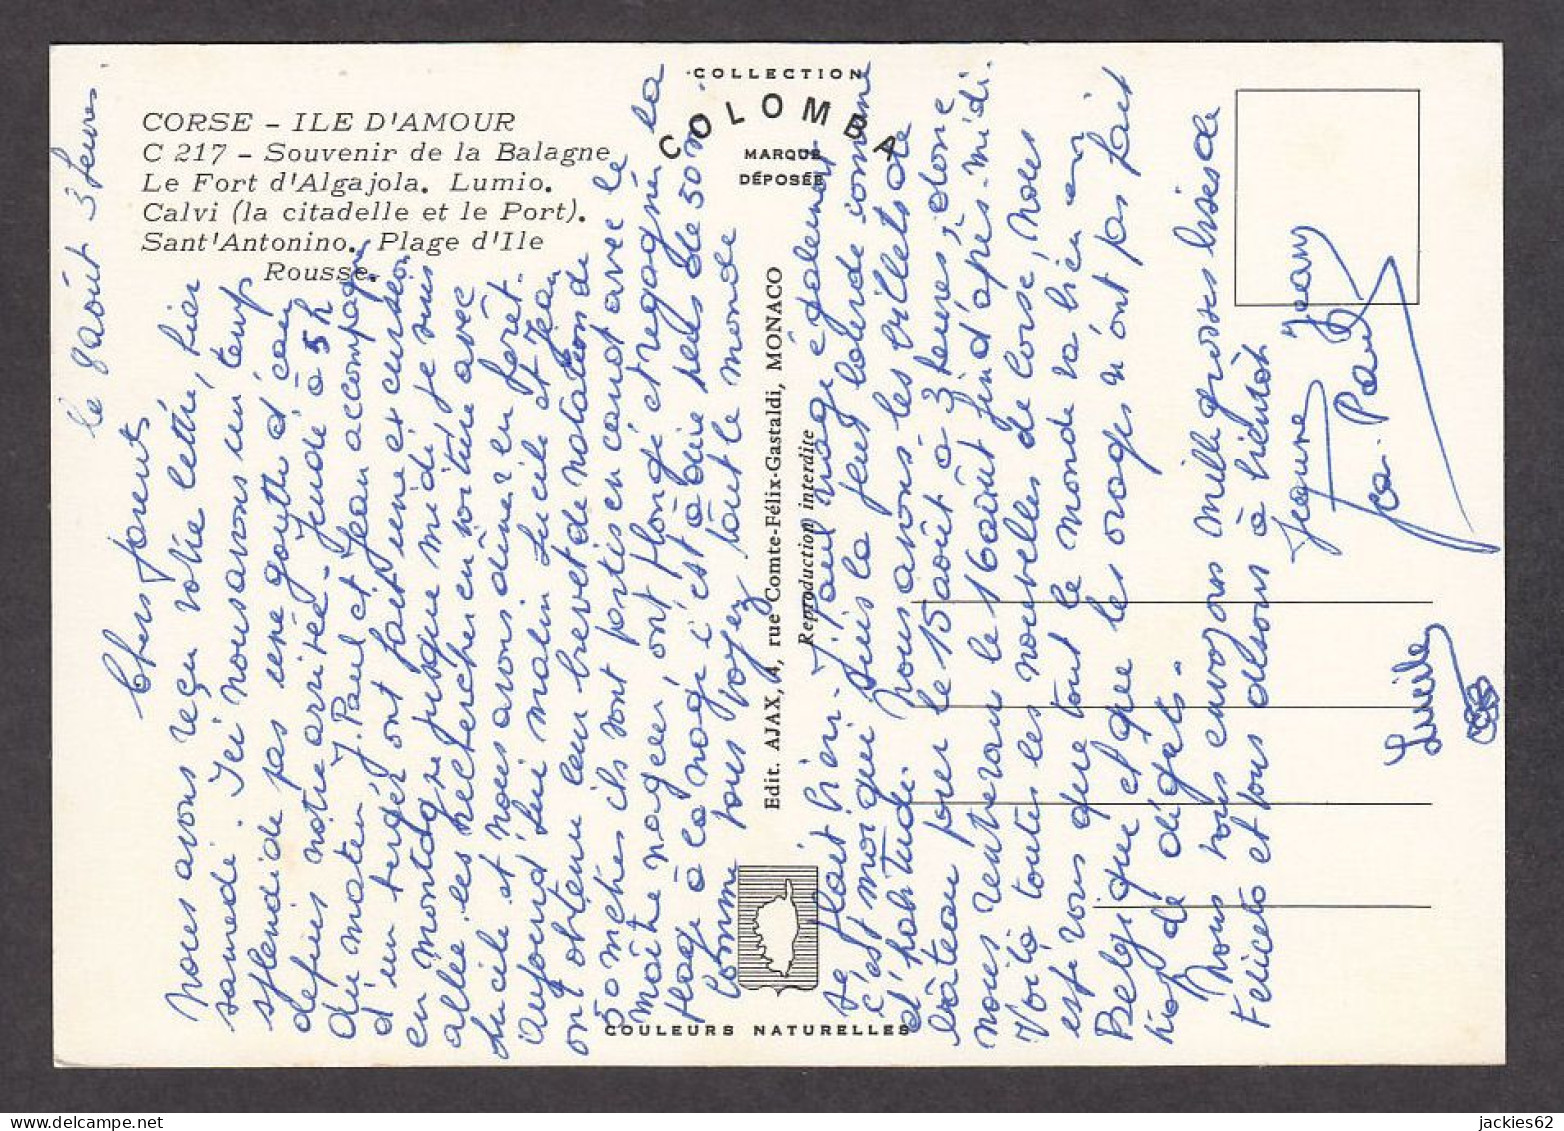 COLLECTION
COLOMBA
MARQUE
DÉPOSÉE
CORSE - ILE D'AMOUR
C 217 - Souvenir de la Balagne
Le Fort d'Algajola. Lumio.
Calvi (la citadelle et le Port).
Sant'Antonino. Plage d'Ile
Rousse.
Edit. AJAX, 4, rue Comte-Félix-Gastaldi, MONACO
Reproduction interdite
COULEURS NATURELLES
le 8 août 3 heures.
Chers parents
Nous avons reçu votre lettre, hier
samedi. Ici nous avons un temps
splendide pas une goutte d'eau
depuis notre arrivée - Jeudi à 5 h
du matin J. Paul et Jean accompagné
d'un berger ont fait une excursion
en montagne jusque midi je suis
allée les rechercher en voiture avec
Lucile et nous avons dîner en forêt.
Aujourd'hui matin Lucile et Jean
ont obtenu leur brevet de natation de
50 mètres ils sont partis en canot avec le
maître nageur, ont plongé et regagné la
plage à la nage c'est à dire plus de 50 m.
Comme vous voyez tout le monde
se plait bien. J. Paul nage également
c'est moi qui suis la plus lourde comme
d'habitude. Nous avons les billets de
bâteau pour le 15 août à 3 heures, donc
nous rentrerons le 16 août fin d'après-midi.
Voilà toutes les nouvelles de Corse, nous
espérons que tout le monde va bien en
Belgique et que les orages n'ont pas fait
trop de dégâts.
Nous vous envoyons mille grosses bises de
Feliceto et vous disons à bientôt
Jeanne Jean
Jea. Paul
Lucile
jackies62